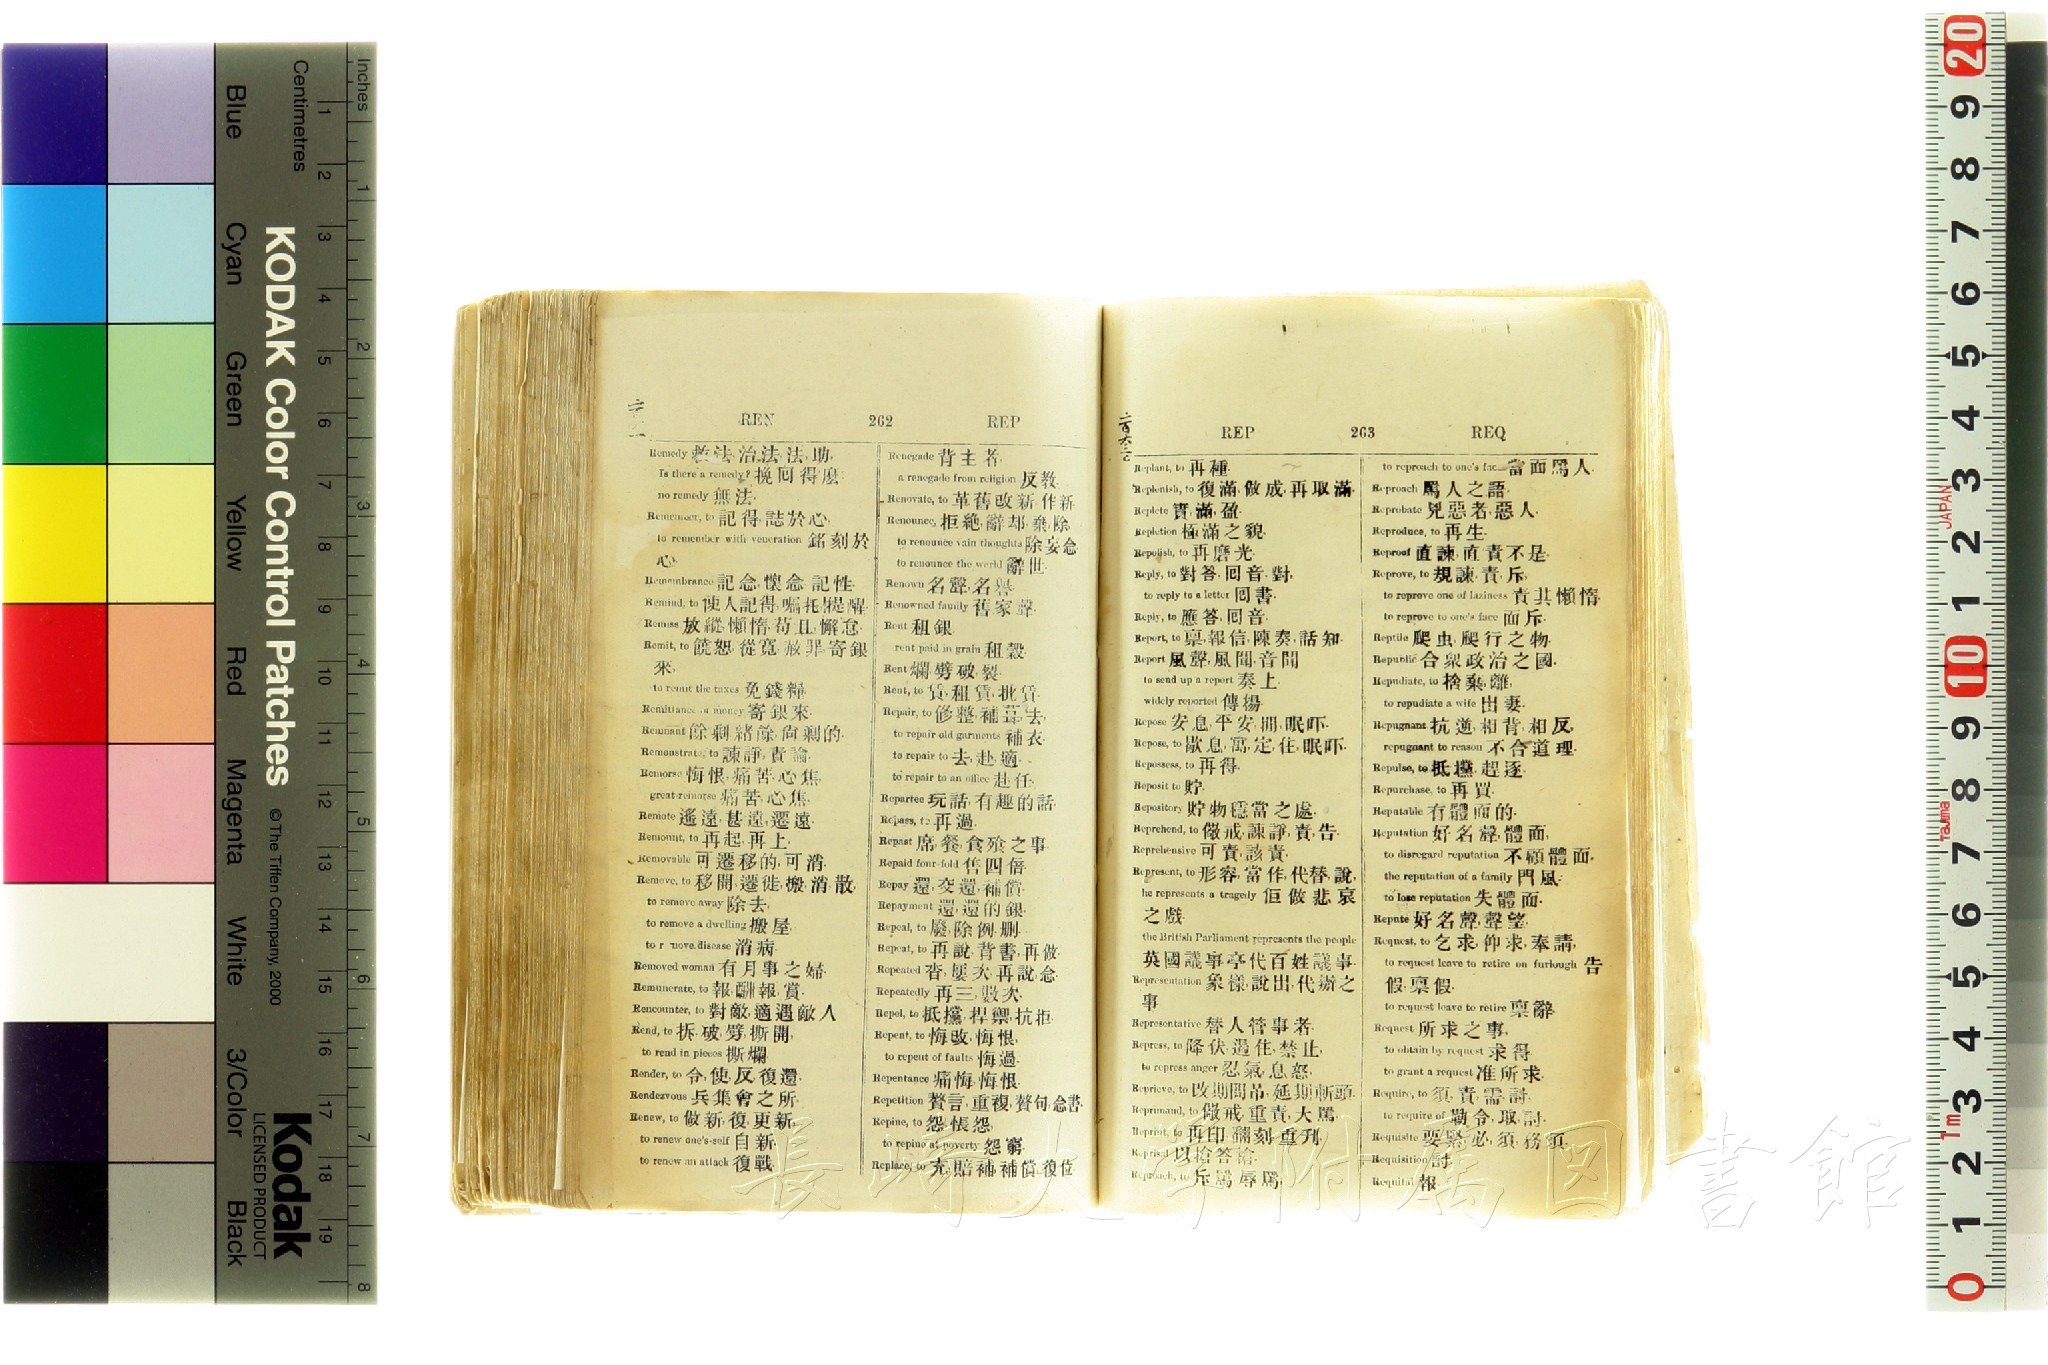 Inches
Centimetres
1 2 3 4 5 6 7 8
1 2 3 4 5 6 7 8 9 10 11 12 13 14 15 16 17 18 19
KODAK Color Control Patches
© The Tiffen Company, 2000
Kodak
LICENSED PRODUCT
Blue
Cyan
Green
Yellow
Red
Magenta
White
3/Color
Black
REN 262 REP
Remedy 救法,治法,法,助.
Is there a remedy? 挽囘得麽
no remedy 無法.
Remember, to 記得,誌於心,
to remember with veneration 銘刻於
心.
Remembrance 記念,懷念,記性.
Remind, to 使人記得,囑托,提醒
Remiss 放縱,懶惰,苟且,懈怠.
Remit, to 饒恕,從寬,赦罪,寄銀
來,
to remit the taxes 免錢糧
Remittance of money 寄銀來.
Remnant 餘剩,緒餘,尙剩的.
Remonstrate, to 諫諍,責論.
Remorse 悔恨,痛苦,心焦
great remorse 痛苦心焦
Remote 遙遠,甚遠,遷遠.
Remount, to 再起,再上.
Removable 可遷移的,可消.
Remove, to 移開,遷徙,搬,消散,
to remove away 除去,
to remove a dwelling 搬屋,
to remove disease 消病,
Removed woman 有月事之婦.
Remunerate, to 報,酬報,賞.
Rencounter, to 對敵,適遇敵人
Rend, to 拆,破,劈,撕開,
to rend in pieces 撕爛,
Render, to 令,使,反,復還,
Rendezvous 兵集會之所,
Renew, to 做新,復,更新,
to renew one's-self 自新,
to renew an attack 復戰.
Renegade 背主者.
a renegade from religion 反教.
Renovate, to 革舊改新,作新
Renounce, 拒絶,辭却,棄,除,
to renounce vain thoughts 除妄念
to renounce the world 辭世.
Renown 名聲,名譽.
Renowned family 舊家聲.
Rent 租銀.
rent paid in grain 租穀.
Rent 爛,劈,破,裂.
Rent, to 賃,租賃,批賃.
Repair, to 修整,補葺,去,
to repair old garments 補衣.
to repair to 去,赴,適.
to repair to an office 赴任.
Repartee 玩話,有趣的話.
Repass, to 再過.
Repast 席,餐,食飧之事.
Repaid four-fold 售四倍.
Repay 還,交還,補償.
Repayment 還,還的銀.
Repeal, to 廢,除例,刪.
Repeat, to 再說,背書,再做.
Repeated 沓,屢次,再說,念.
Repeatedly 再三,數次.
Repel, to 抵攩,捍禦,抗拒.
Repent, to 悔改,悔恨,
to repent of faults 悔過.
Repentance 痛悔,悔恨.
Repetition 贅言,重複,贅句,念書.
Repine, to 怨,悵怨,
to repine at poverty 怨窮.
Replace, to 充,賠補,補償,復位
二百六三
REP 263 REQ
Replant, to 再種.
Replenish, to 復滿,做成,再取滿.
Replete 實,滿,盈.
Repletion 極滿之貌.
Repolish, to 再磨光.
Reply, to 對答,囘音,對,
to reply to a letter 囘書.
Reply, to 應答,囘音.
Report, to 稟報信,陳奏,話知.
Report 風聲,風聞,音聞
to send up a report 奏上.
widely reported 傳揚
Repose 安息,平安,閒,眠吓.
Repose, to 歇息,寓,定,住,眠吓.
Repossess, to 再得.
Reposit to 貯.
Repository 貯物穩當之處.
Reprehend, to 儆戒,諫諍,責,告.
Reprehensive 可責,該責.
Represent, to 形容,當作,代替,說,
he represents a tragedy 佢做悲哀
之戲.
the British Parliament represents the people
英國議事亭代百姓議事.
Representation 象樣,說出,代辦之
事
Representative 替人管事者.
Repress, to 降伏,遏住,禁止,
to repress anger 忍氣,息怒.
Reprieve, to 改期問吊,延期斬頭.
Reprimand, to 儆戒,重責,大罵.
Reprint, to 再印,翻刻,重刋.
Reprisal 以搶答搶.
Reproach, to 斥罵,辱罵,
to reproach to one's face 當面罵人.
Reproach 罵人之語.
Reprobate 兇惡者,惡人.
Reproduce, to 再生.
Reproof 直諫,直責不是.
Reprove, to 規諫,責,斥,
to reprove one of laziness 責其懶惰
to reprove to one's face 面斥.
Reptile 爬虫,爬行之物.
Republic 合衆政治之國.
Repudiate, to 捨棄,離,
to repudiate a wife 出妻.
Repugnant 抗逆,相背,相反,
repugnant to reason 不合道理.
Repulse, to 抵攩,趕逐.
Repurchase, to 再買.
Reputable 有體面的.
Reputation 好名聲,體面,
to disregard reputation 不顧體面,
the reputation of a family 門風.
to lose reputation 失體面.
Repute 好名聲,聲望.
Request, to 乞求,仰求,奉請,
to request leave to retire on furlough 告
假,稟假.
to request leave to retire 稟辭.
Request 所求之事,
to obtain by request 求得
to grant a request 准所求.
Require, to 須,責,需,討.
to require of 勒令,取,討.
Requisite 要緊,必,須,務須.
Requisition 討.
Requital 報.
長崎大学附属図書館
0 1 2 3 4 5 6 7 8 9 10 1 2 3 4 5 6 7 8 9 20
1m
Tajima
JAPAN